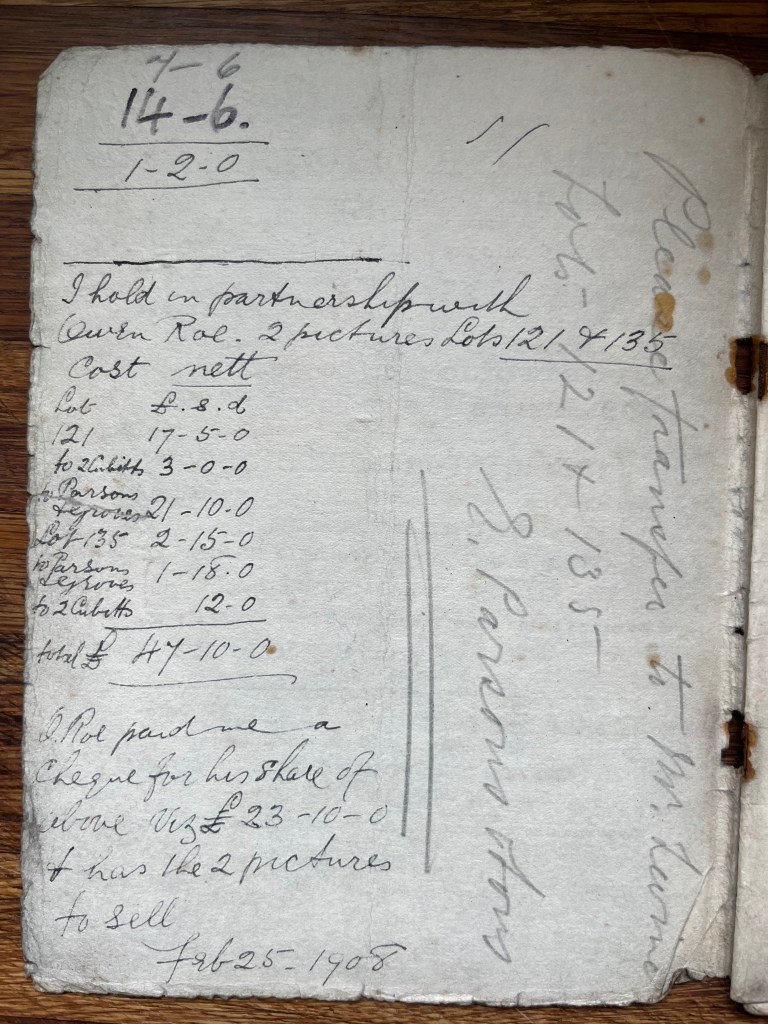 7-6
14-6.
1-2-0
I hold in partnership with
Owen Roe. 2 pictures Lots 121 & 135
Cost nett
Lot £.s.d
121 17-5-0
to 2 Cubitts 3-0-0
to Parsons
& Groves 21-10-0
Lot 135 2-15-0
to Parsons
& Groves 1-18-0
to 2 Cubitts 12-0
total £ 47-10-0
O. Roe paid me a
Cheque for his share of
above viz £23-10-0
& has the 2 pictures
to sell
Feb 25-1908
Please transfer to Mr. Levine
Lots- 121 & 135
E. Parsons & Sons